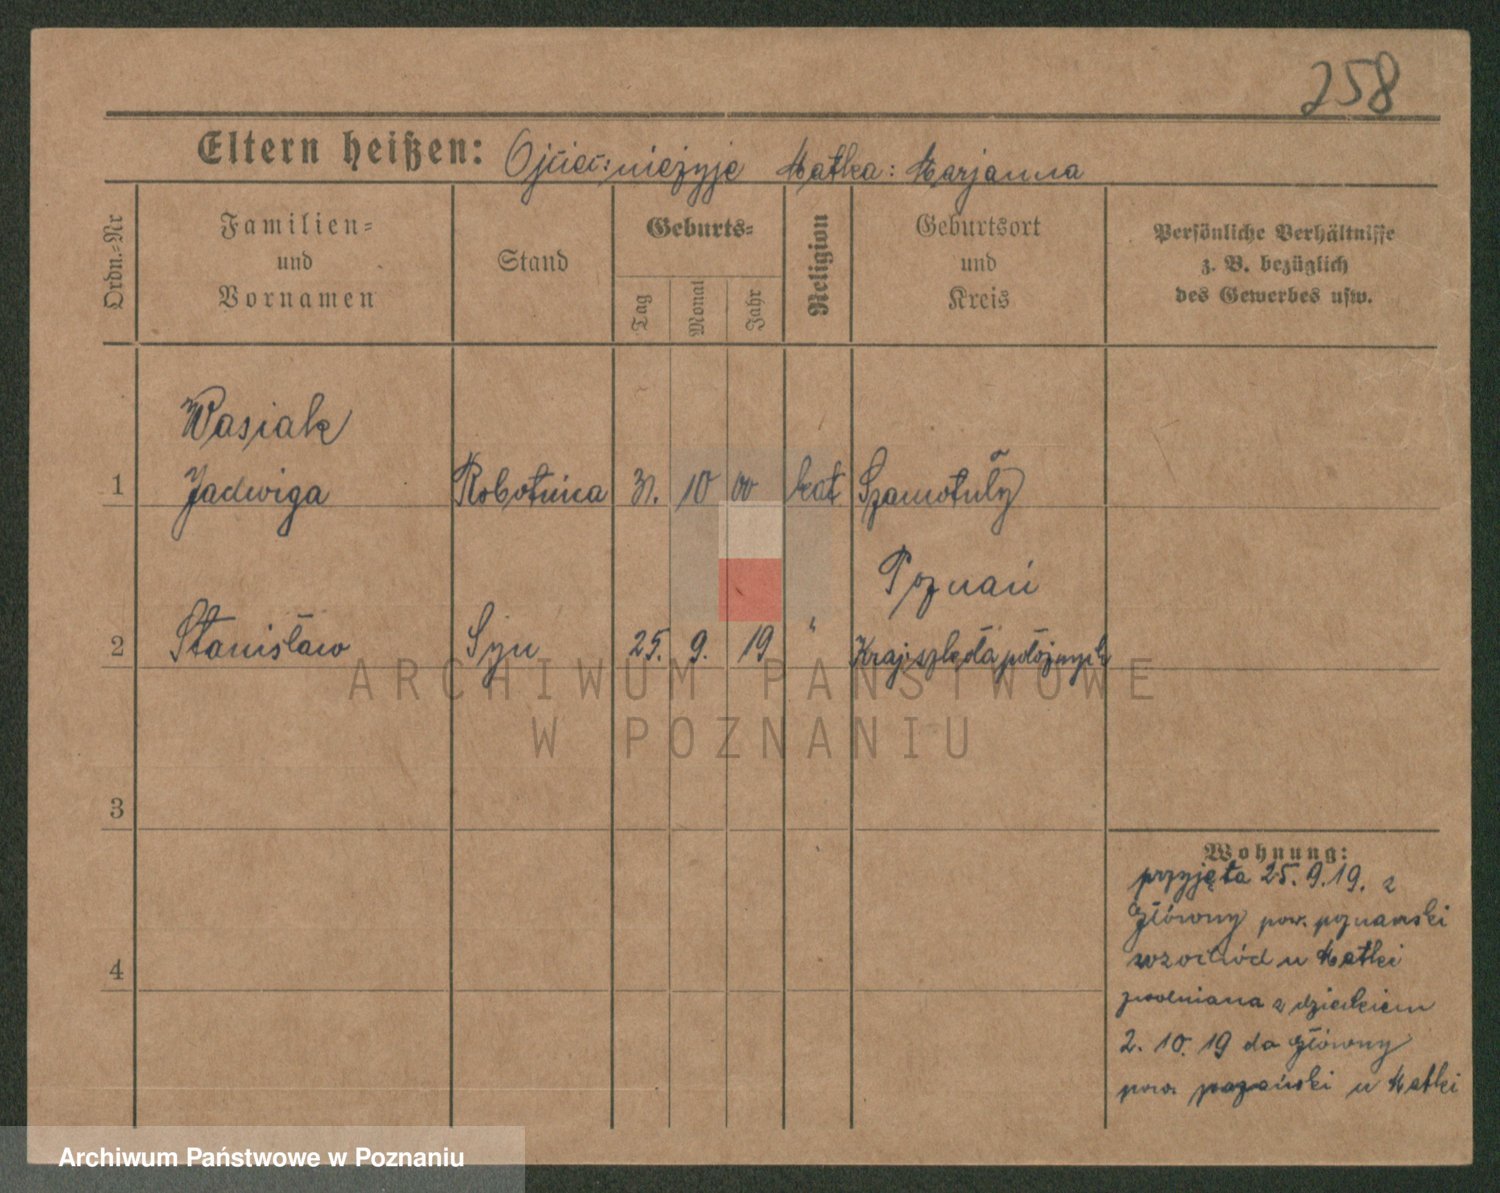 258
Eltern heißen: Ojciec: nieżyje Matka: Marjanna
Ordn.=Nr
Familien=
und
Vornamen
Stand
Geburts=
Tag
Monat
Jahr
Religion
Geburtsort
und
Kreis
Persönliche Verhältnisse
z. B. bezüglich
des Gewerbes usw.
Wasiak
1 Jadwiga Robotnica 31. 10 00 kat. Szamotuły
Poznań
2 Stanisław Syn 25. 9. 19 " Kraj. szkoła położnych
ARCHIWUM PAŃSTWOWE
W POZNANIU
3
4
Wohnung:
przyjęta 25.9.19. z
Główny pow. poznański
u Matki
zwolniana z dzieckiem
2. 10. 19 do Główny
pow. poznański u Matki
Archiwum Państwowe w Poznaniu